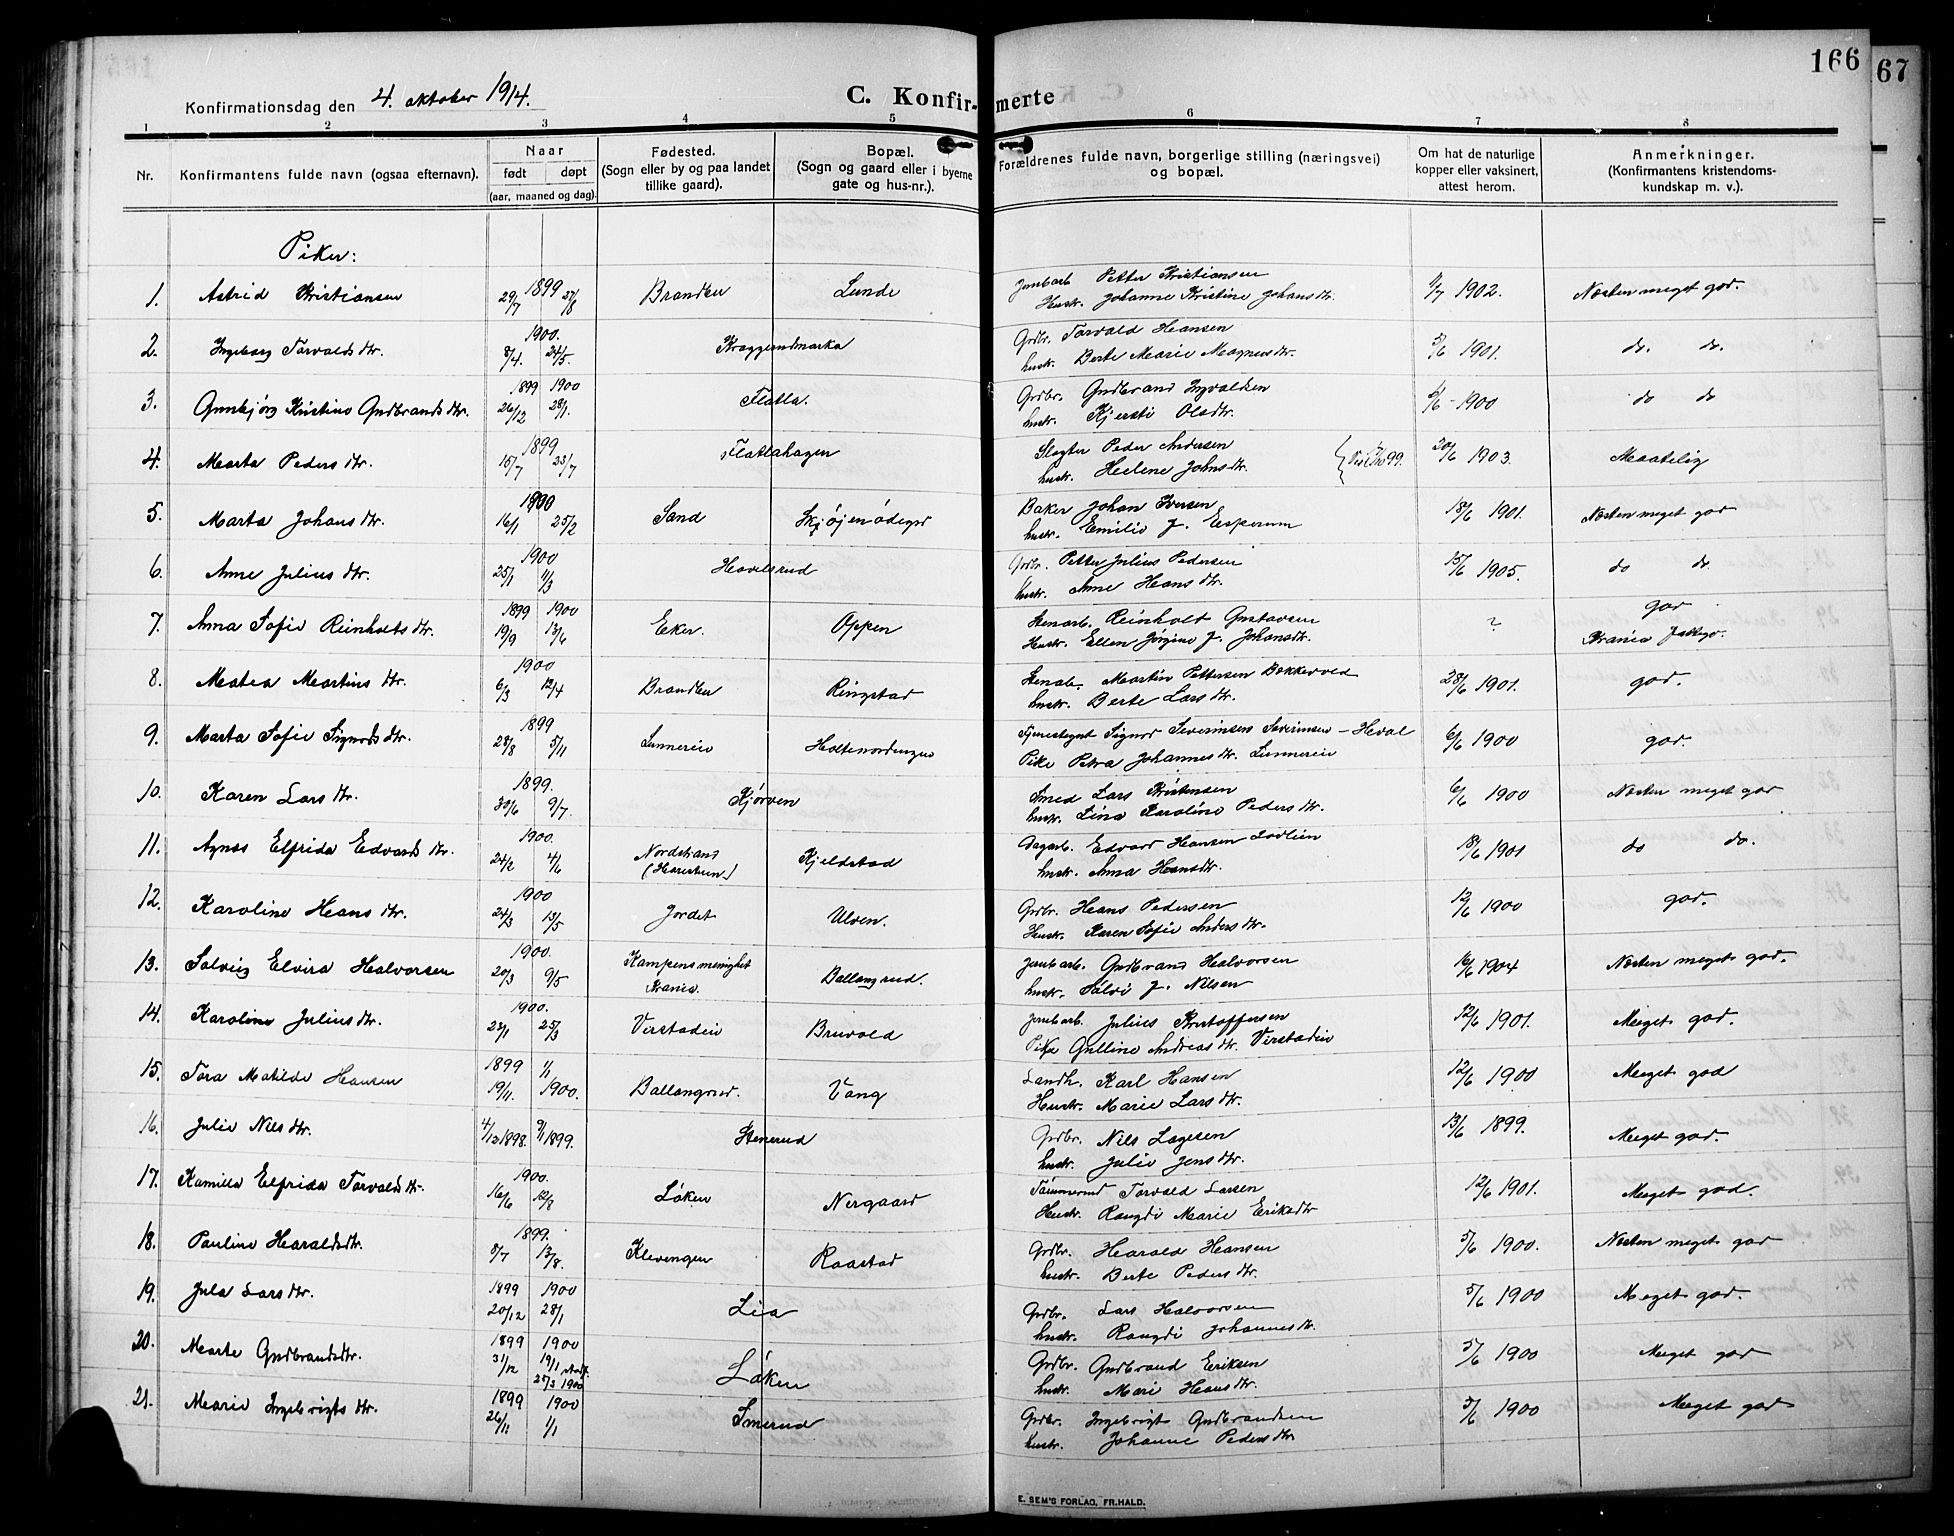 166
67
Konfirmationsdag den 4. oktober 1914.
C. Konfirmerte
1 2 3 4 5 6 7 8
Nr.
Konfirmantens fulde navn (ogsaa efternavn).
Naar
født døpt
(aar, maaned og dag).
Fødested.
(Sogn eller by og paa landet
tillike gaard).
Bopæl.
(Sogn og gaard eller i byerne
gate og hus-nr.).
Forældrenes fulde navn, borgerlige stilling (næringsvei)
og bopæl.
Om hat de naturlige
kopper eller vaksinert,
attest herom.
Anmerkninger.
(Konfirmantens kristendoms-
kundskap m. v.).
Piker:
1. Astrid Kristiansen 1899 29/7 27/8 Brandbu Lunde Jernbarb. Petter Kristiansen
Hustr. Johanne Kristine Johansdtr. 1902. Næsten meget god.
2. Ingeborg Torvaldsdtr. 1900. 8/4. 24/5. Kraggerudmarka Grdbr. Torvald Hansen
hustr. Berte Marie Magnusdtr. 5/6 1901. do. do.
3. Gunbjørg Kristine Gudbrandsdtr. 1899 1900 26/12 28/1. Flatla. Grdbr. Gudbrand Ingvaldsen
hustr. Kjersti Olsdtr. 6/6 - 1900 do do
4. Marta Pedersdtr. 1899 15/7 23/7 Flatlahagen Slagter Peder Andersen
hustr. Helene Johnsdtr. 20/6 1903. Maatelig
5. Marta Johansdtr. 1900 16/1 25/2 Sand Skjøjenødegrd Baker Johan Iversen
hustr. Emilie J. Esperum 18/6 1901. Næsten meget god
6. Anne Juliusdtr. 1900 25/1 11/3 Havelsrud Grdbr. Petter Julius Pedersen
hustr. Anne Hansdtr. 15/6 1905. do do.
7. Anna Sofie Reinholtsdtr. 1899 1900 19/9 13/6 Eker. Oppen Stenarb. Reinholt Gustavsen
Hustr. Ellen Jørgine J. Johansdtr. ? god
8. Matea Martinsdtr. 1900 6/3 12/4 Brandbu Ringstad Stenab. Martin Pettersen Bekkevold
hustr. Berte Larsdtr. 28/6 1901. god.
9. Marta Sofie Sigvardsdtr. 1899 28/8 5/11 Lunnereie Tjenestegut Sigvar Severinsen Severinsen - Hval
Pike Petra Johannesdtr. Lunnereie 6/6 1900 god.
10. Karen Larsdtr. 1899. 30/6 9/7. Kjørven Smed Lars Kristensen
hustr. Lina Karoline Pedersdtr. 6/6 1900 Næsten meget god
11. Agnes Elfrida Edvardsdtr. 1900. 24/2 4/6 Nordstrand
(Harestuen) Kjeldstad Dagarb. Edvard Hansen Lovlien
hustr. Anna Hansdtr. 18/6 1901 do do.
12. Karoline Hansdtr. 1900 24/3 13/5 Jordet Ulven. Grdbr. Hans Pedersen
Hustr. Karen Sofie Andersdtr. 12/6 1900 god.
13. Solveig Elvira Halvorsen 1900. 20/3 9/5 Kampens menighet
Krania. Ballangrud. Jernbarb. Gudbrand Halvorsen
hustr. Sølvi J. Nilsen 16/6 1904 Næsten meget god.
14. Karoline Juliusdtr. 1900. 23/1 25/3 Virstadeie Bruvold Jernbarb. Julius Kristoffersen
Pike Gulline Andreasdtr. Virstadeie 12/6 1901. Meget god.
15. Tora Matilde Hansen 1899 1/1
19/11. 1900. Ballangrud. Vang Landh. Karl Hansen
Hustr. Marie Larsdtr. 12/6 1900 Meget god
16. Julie Nilsdtr. 4/12 1898. 9/1 1899. Stenerud Grdbr. Nils Lagesen
hustr. Julie Jensdtr. 13/6 1899. Meget god.
17. Kamilla Elfrida Torvaldsdtr. 1900. 16/6 12/8 Løken Nergaard Tømmermd Torvald Larsen
Hustr. Rangdi Marie Eriksdtr 12/6 1901. Meget god.
18. Pauline Haraldsdtr. 1899. 8/7 13/8. Klevengen Raastad Grdbr. Harald Hansen
hustr. Berte Pedersdtr. 5/6 1900. Næsten meget god
19. Jula Larsdtr. 1899 1900 20/12 28/1 Lia Grdbr. Lars Halvorsen
hustr. Rangdi Johannesdtr. 5/6 1900 Meget god.
20. Marte Gudbrandsdtr. 1899 1900 31/12 19/1 stadf.
25/3 1900 Løken Grdbr. Gudbrand Eriksen
hustr. Mari Hansdtr. 5/6 1900 Meget god
21. Marie Ingebrigtsdtr. 1899 1900 26/11 1/1 Smerud Grdbr. Ingebrigt Gudbrandsen
hustr. Johanne Pedersdtr 5/6 1900 Meget god
E. SEM'S FORLAG, FR.HALD.